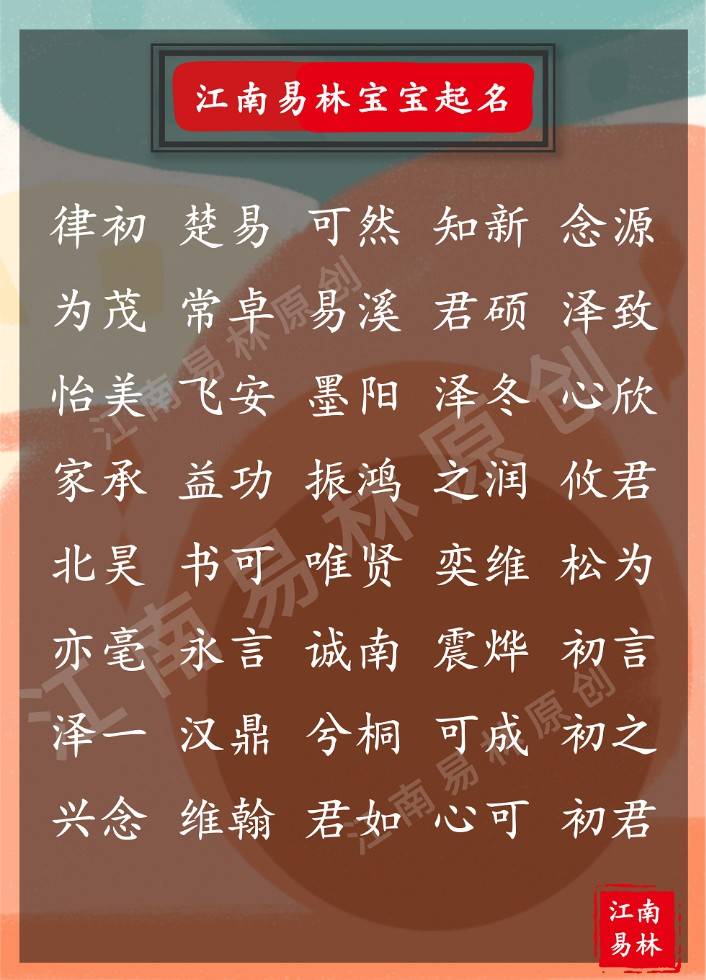 江南易林宝宝起名
律初 楚易 可然 知新 念源
为茂 常卓 易溪 君硕 泽致
怡美 飞安 墨阳 泽冬 心欣
家承 益功 振鸿 之润 攸君
北昊 书可 唯贤 奕维 松为
亦毫 永言 诚南 震烨 初言
泽一 汉鼎 兮桐 可成 初之
兴念 维翰 君如 心可 初君
江南易林原创
江南易林原创
江南易林原创
江南
易林